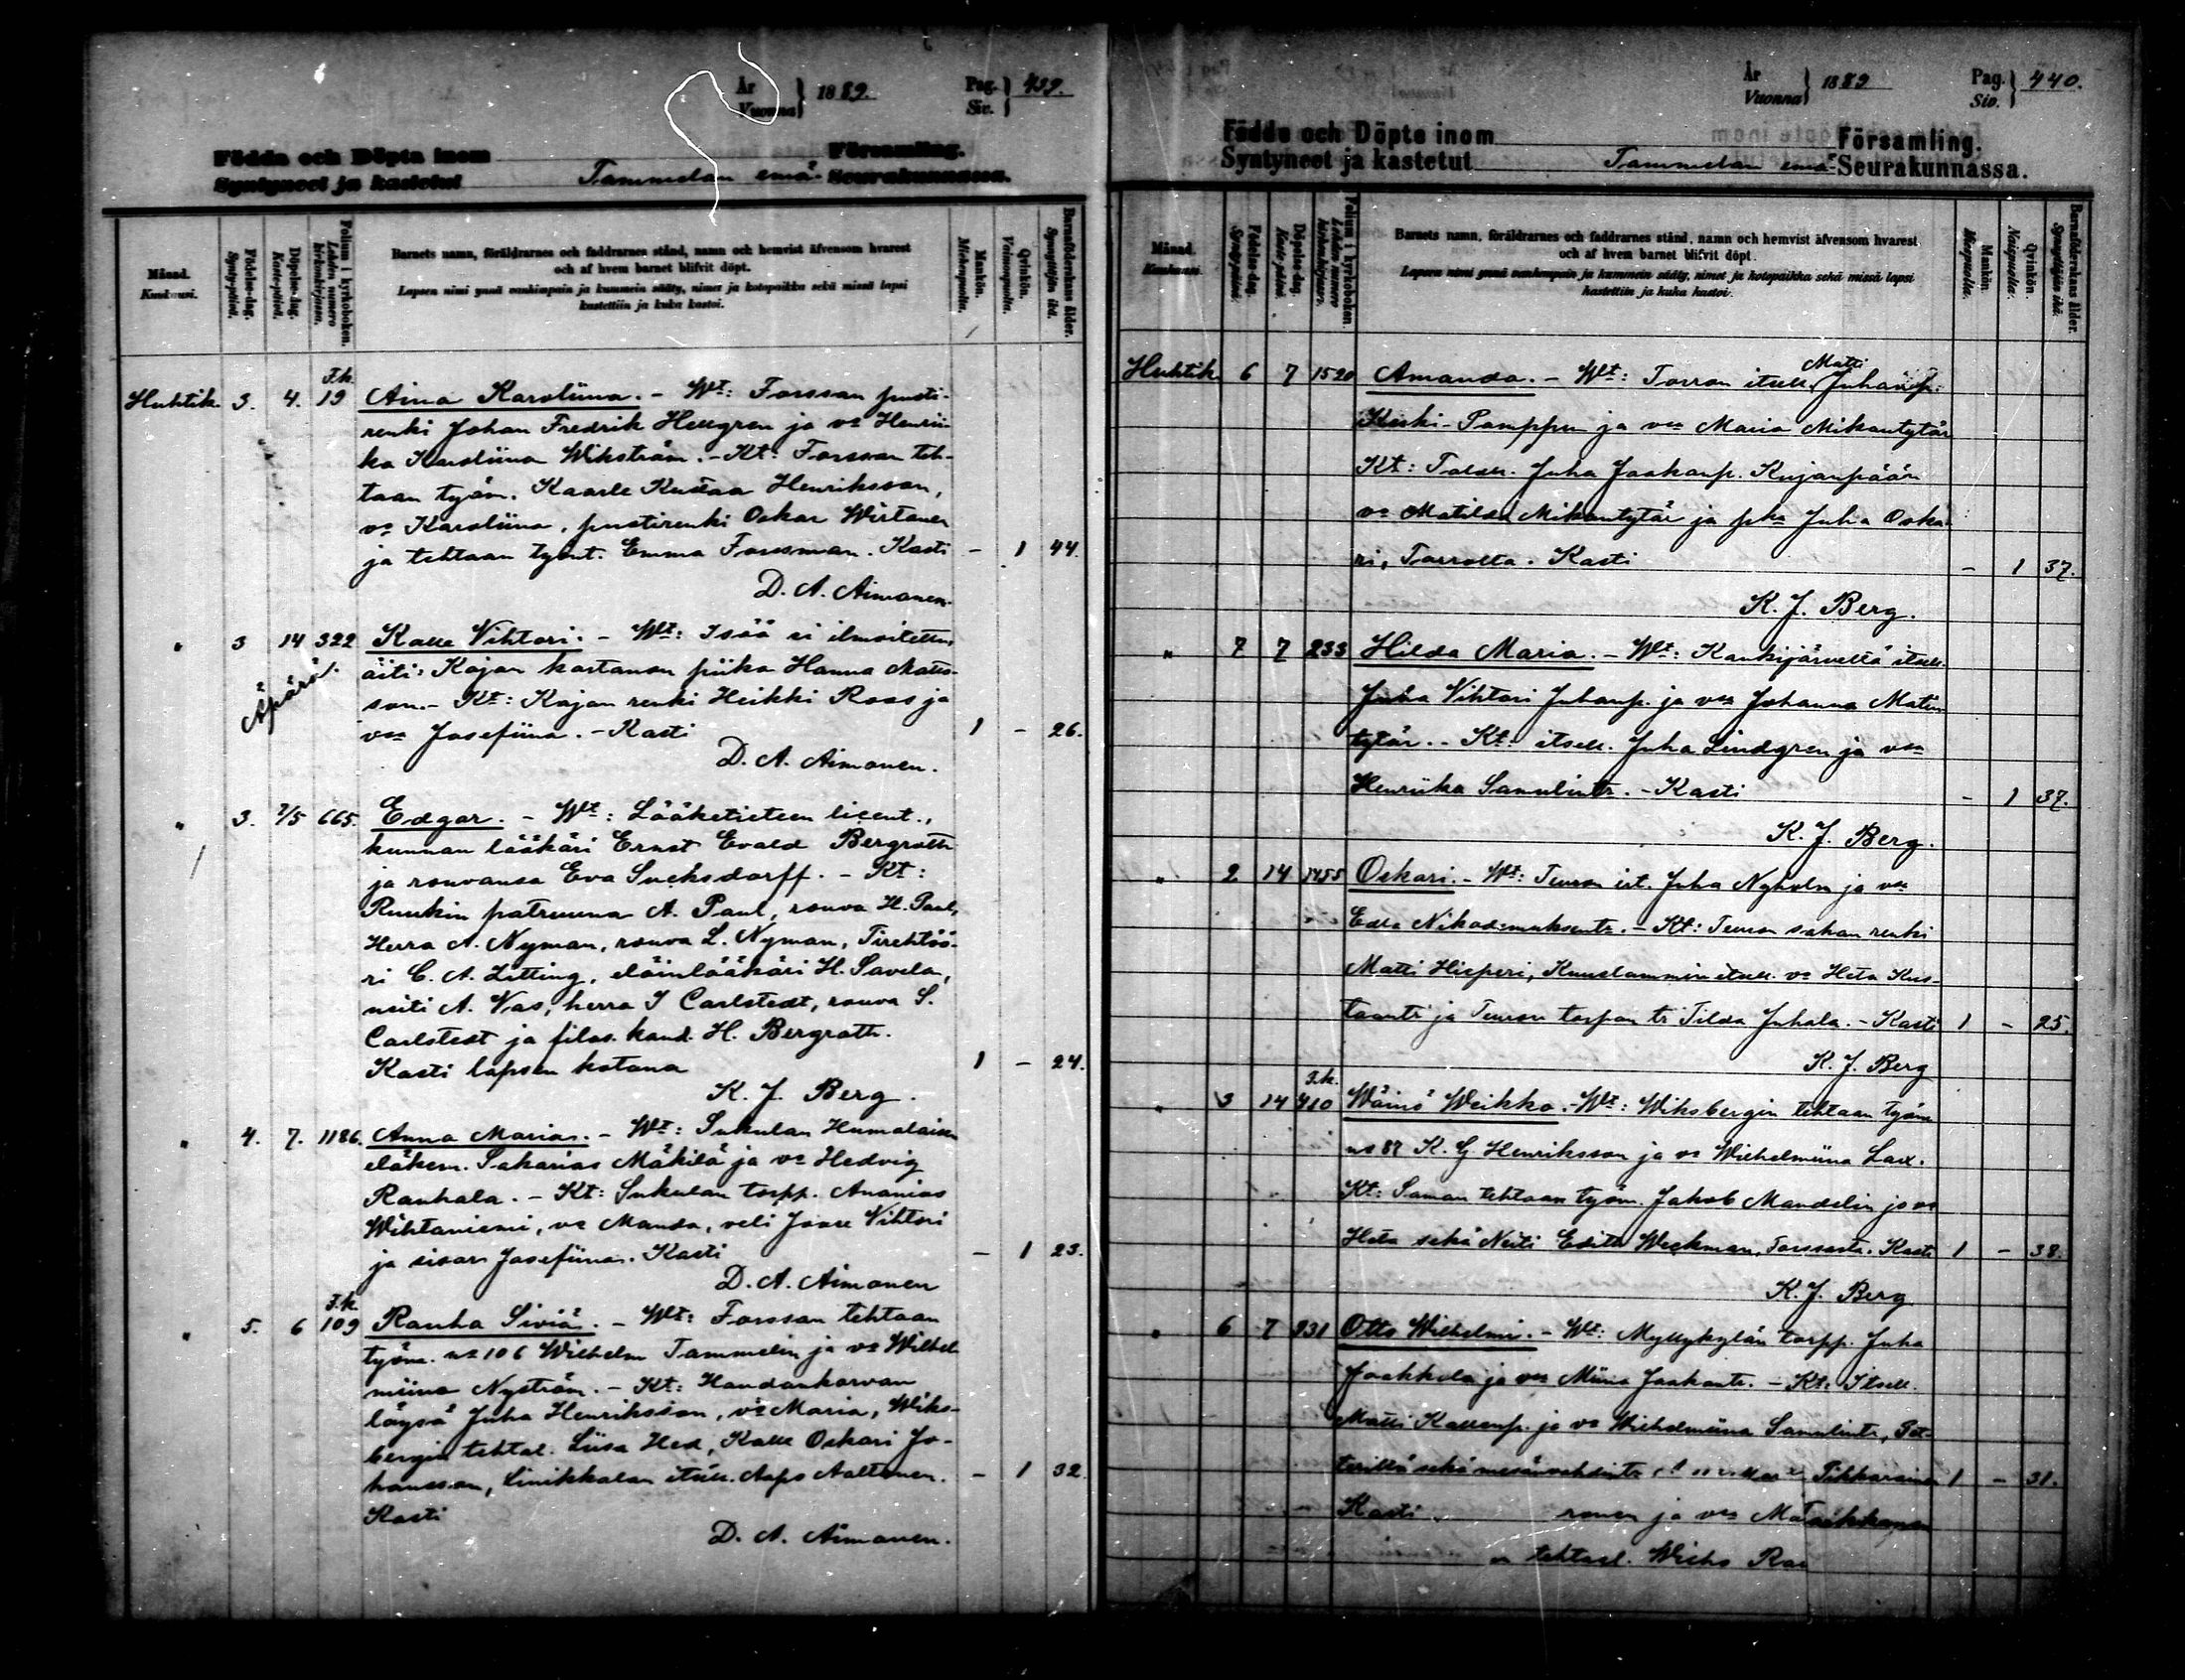 År
Vuonna 1889.
Pag.
Siv. 439.
Födda och Döpta inom
Församling.
Syntyneet ja kastetut
Tammelan emä-
Seurakunnassa.
Månad.
Kuukausi.
Födelse-dag.
Synty-päivä.
Döpelse-dag.
Kaste-päivä.
Folium i kyrkoboken.
Lehden numero kirkonkirjassa.
Barnets namn, föräldrarnes och faddrarnes stånd, namn och hemvist äfvensom hvarest
och af hvem barnet blifvit döpt.
Lapsen nimi ynnä vanhimpain ja kummein sääty, nimet ja kotopaikka sekä missä lapsi
kastettiin ja kuka kastoi.
Mankön.
Miehenpuolta.
Qvinkön.
Vaimonpuolta.
Barnaföderskans ålder.
Synnyttäjän ikä.
F.k.
Huhtik. 3. 4. 19 Aina Karoliina. - Wt: Forssan pusti-
renki Johan Fredrik Hellgren ja vo Henrii-
ka Karoliina Wikström. - Kt: Forssan teh-
taan työm. Kaarle Kustaa Henriksson,
vo Karoliina, pustirenki Oskar Wirtanen
ja tehtaan työnt. Emma Forssman. Kasti - 1 44.
D. A. Aimonen.
" 3 14 322 Kalle Vihtori. - Wt: Isää ei ilmoitettu,
Äpärä.
äiti: Kojan kartanon piika Hanna Matts-
son. - Kt: Kojan renki Heikki Roos ja
vsa Josefiina. - Kasti 1 - 26.
D. A. Aimonen.
" 3. 2/5 665. Edgar. - Wt: Lääketieteen licent.,
kunnan lääkäri Ernst Evald Bergroth
ja rouvansa Eva Sucksdorff. - Kt:
Ruukin patruuna A. Paul, rouva H. Paul,
Herra A. Nyman, rouva L. Nyman, Tirehtöö-
ri C. A. Zitting, eläinlääkäri H. Savela,
neiti A. Vas, herra I Carlstedt, rouva S.
Carlstedt ja filos. kand. H. Bergroth.
Kasti lapsen kotona 1 - 24.
K. J. Berg.
" 4. 7. 1186. Anna Maria. - Wt: Sukulan Humalaisen
eläkem. Sakarias Mäkilä ja vo Hedvig
Rauhala. - Kt: Sukulan torpp. Ananias
Wihtaniemi, vo Manda, veli Joose Vihtori
ja sisar Josefiina. Kasti - 1 23.
D. A. Aimonen
F.k.
" 5. 6 109 Rauha Siviä. - Wt: Forssan tehtaan
työm. no 106 Wilhelm Tammelin ja vo Wilhel-
miina Nyström. - Kt: Haudankorvan
Juha Henriksson, vo Maria, Wiks-
bergin tehtal. Liisa Hed, Kalle Oskari Jo-
hansson, Linikkalan itsell. Aapo Aaltonen. - 1 32.
Kasti
D. A. Aimonen.
År
Vuonna 1889
Pag.
Siv. 440.
Födda och Döpta inom
Församling.
Syntyneet ja kastetut
Tammelan emä-
Seurakunnassa.
Månad.
Kuukausi.
Födelse-dag.
Synty-päivä.
Döpelse-dag.
Kaste-päivä.
Folium i kyrkoboken.
Lehden numero kirkonkirjassa.
Barnets namn, föräldrarnes och faddrarnes stånd, namn och hemvist äfvensom hvarest
och af hvem barnet blifvit döpt.
Lapsen nimi ynnä vanhempain ja kummein sääty, nimet ja kotopaikka sekä missä lapsi
kastettiin ja kuka kastoi.
Mankön.
Miespuolia.
Qvinkön.
Naispuolia.
Barnaföderskans ålder.
Synnyttäjän ikä.
Matti
Huhtik 6 7 1520 Amanda. - Wt: Torron itsell. Juhanp.
Keski-Pomppu ja vsa Maria Mikontytär
Kt: Taloll. Juha Jaakonp. Kujanpään
vo Matilda Mikontytär ja pka Juha Oska-
ri, Torrolta. Kasti - 1 37.
K. J. Berg.
" 7 7 233 Hilda Maria. - Wt: Kaukijärveltä itsell.
Juha Vihtori Juhanp. ja vsa Johanna Matin-
tytär. - Kt: itsell. Juha Lindgren ja vsa
Henriika Samulintr. - Kasti - 1 37.
K. J. Berg.
" 2 14 1455 Oskari. - Wt: Teuron ist. Juha Nyholm ja vsa
Edla Nikodemuksentr. - Kt: Teuron sahan renki
Matti Hisperi, Kuuslammin itsell. vo Heta Kus-
taantr ja Teuron torpan tr Tilda Juhala. - Kasti 1 - 25.
K. J. Berg
F.k.
" 3 14 410 Wäinö Weikko. - Wt: Wiksbergin tehtaan työm
no 87 K. G. Henriksson ja vo Wilhelmiina Lax.
Kt: Saman tehtaan työm. Jakob Mandelin ja vo
Heta sekä Neiti Edith Weckman, Forssasta. Kasti 1 - 38.
K. J. Berg
" 6 7 931 Otto Wilhelmi. - Wt: Myllykylän torpp. Juha
Jaakkola ja vsa Miina Jaakontr. - Kt: Itsell.
Matti Kallenp. ja vo Wilhelmiina Samulintr, Pet-
terillä sekä Tikkarainen 1 - 31.
Kasti ronen ja vsa
tehtaal.